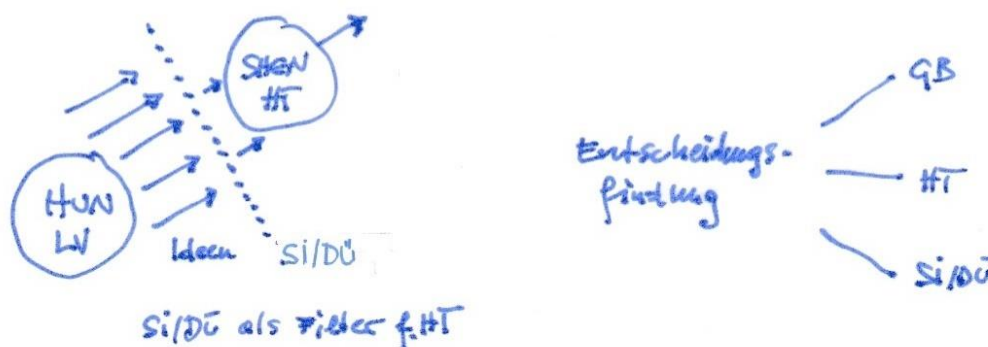 SHEN
HT
HUN
LV
Ideen
Si/Dü
Si/Dü als Filter f. HT
Entscheidungs-
findung
GB
HT
Si/Dü